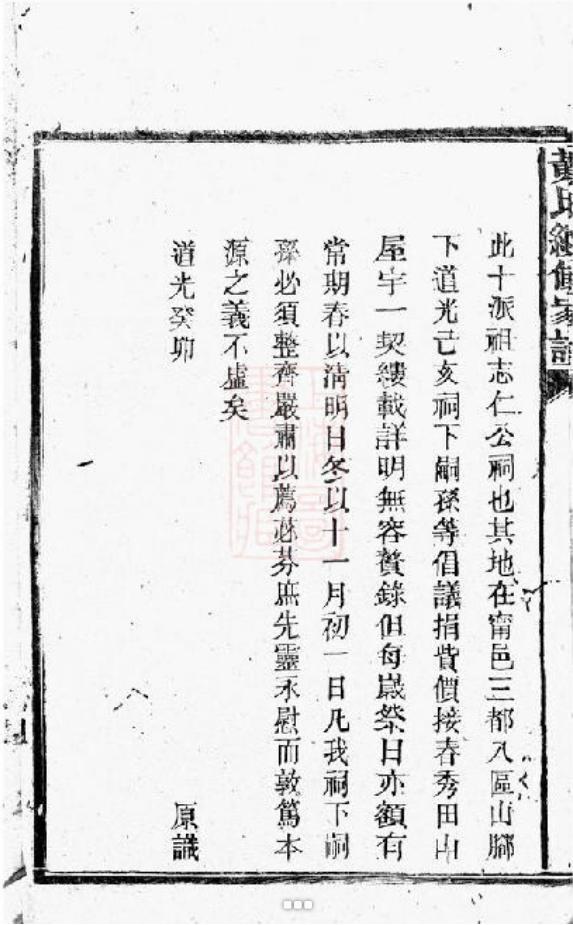 戴氏續修家譜
此十派祖志仁公祠也其地在甯邑三都八區山腳
下道光己亥祠下嗣孫等倡議捐費價接春秀田山
屋宇一契縷載詳明無容贅錄但每歲祭日亦額有
常期春以清明日冬以十一月初一日凡我祠下嗣
孫必須整齊嚴肅以薦苾芬庶先靈永慰而敦篤本
源之義不虛矣
道光癸卯
原識